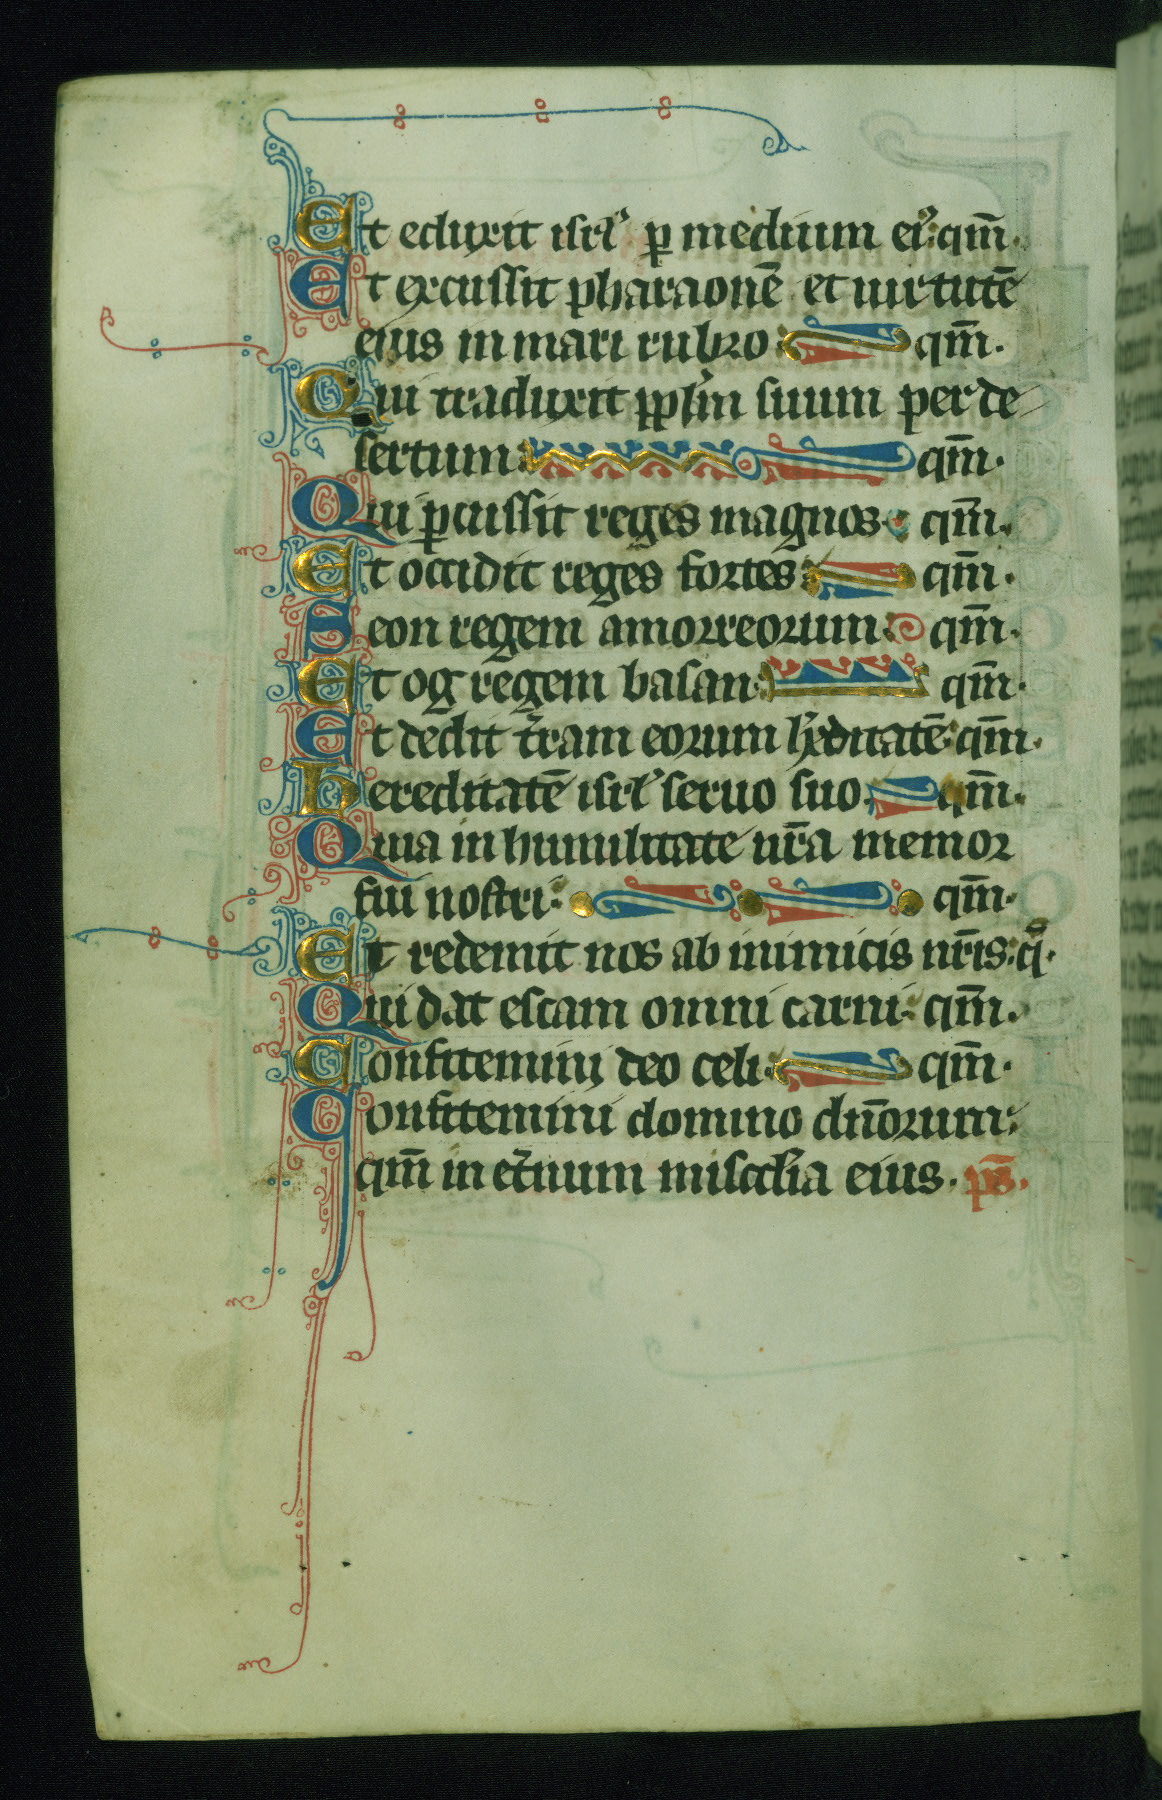 Et eduxit isrl' p medium ei': qm̄.
Et excussit pharaonē et uirtutē
eius in mari rubro: qm̄.
Qui traduxit pplm̄ suum per de
sertum: qm̄.
Qui pcussit reges magnos. qm̄.
Et occidit reges fortes: qm̄.
Seon regem amorreorum: qm̄.
Et og regem basan: qm̄.
Et dedit t̄ram eorum h̄editatē: qm̄.
hereditatē isrl' seruo suo. qm̄.
Quia in humilitate nr̄a memor
fuit nostri: qm̄.
Et redemit nos ab inimicis nr̄is: q̄.
Qui dat escam omni carni: qm̄.
Confitemini deo celi: qm̄.
Confitemini domino dn̄orum:
qm̄ in et̄num misc̄dia eius. ps̄.